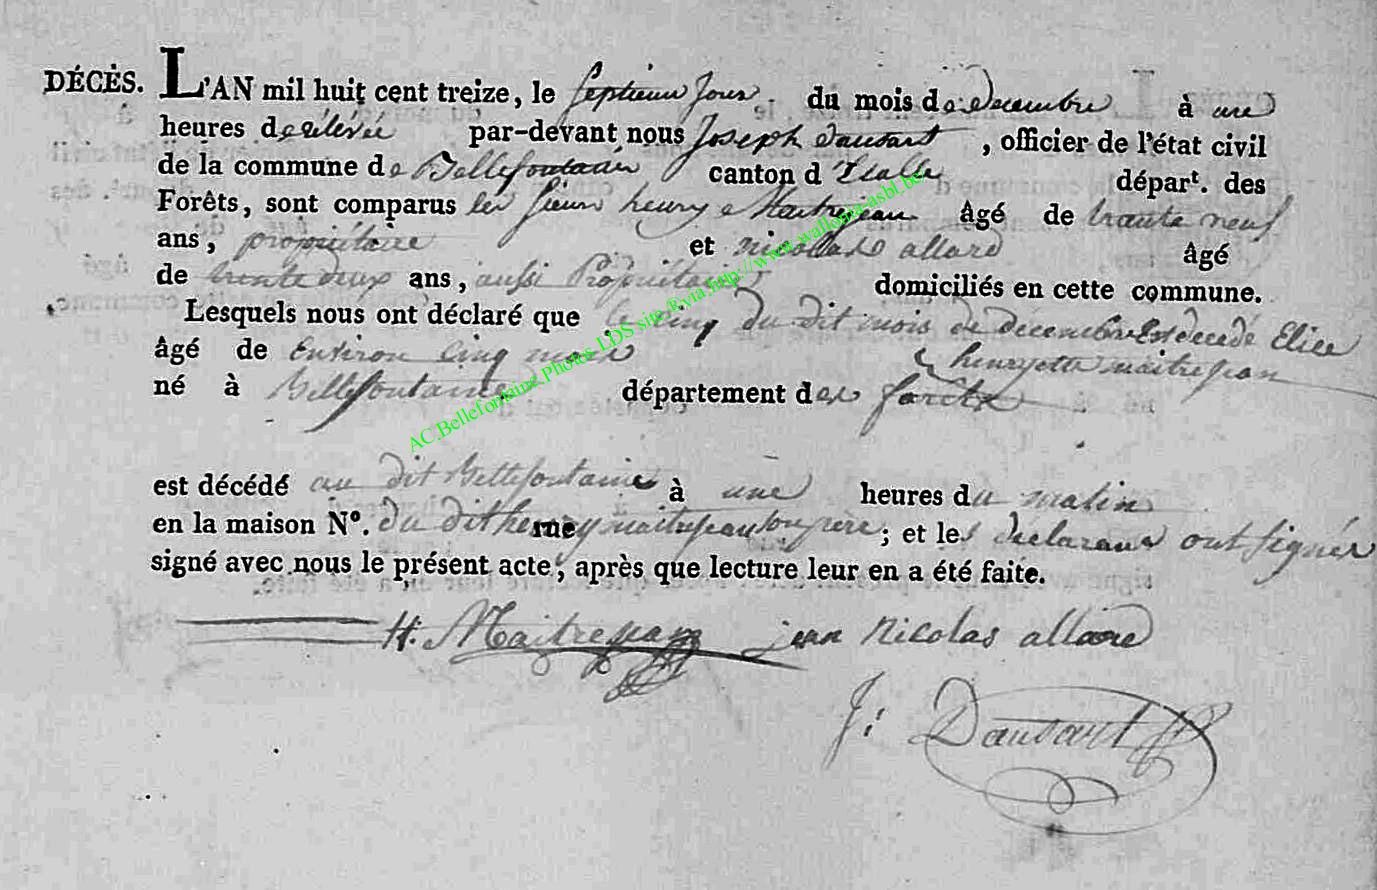 DÉCÈS. L'AN mil huit cent treize, le septieme jour du mois de decembre à une
heures de rélévée par-devant nous Joseph dausart, officier de l'état civil
de la commune de Bellefontaine canton d'Etalle départ. des
Forêts, sont comparus les sieur henry Maitrejean âgé de trante neuf
ans, propriétaire et nicolas allard âgé
de trente deux ans, aussi Propriétaire domiciliés en cette commune.
Lesquels nous ont déclaré que le cinq du dit mois de decembre est decedé Elice
henryette maitrejean
âgé de Environ cinq mois
né à Bellefontaine département des forêts
est décédé au dit Bellefontaine à une heures du matin
en la maison N°. du dit henry maitrejean son père; et les declarans ont signés
signé avec nous le présent acte, après que lecture leur en a été faite.
H. Maitrejean jean Nicolas allard
J: Dausart
AC.Bellefontaine.Photos LDS site®via http://www.wallonia-asbl.be